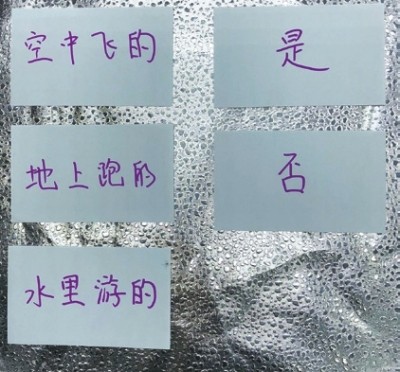 空中飞的
是
地上跑的
否
水里游的